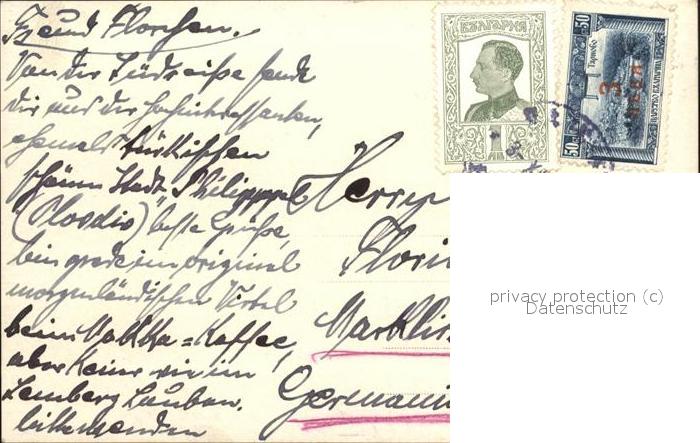 Freund Florchen.
Von der Südreise sende
dir aus der hochinteressanten,
ehemals türkischen
schönen Stadt Philippopel
(Plovdiv) beste Grüße,
bin grade im original
morgenländischen Virtel
beim Mokka=Kaffee,
aber keine wie im
Lemberg Lauban.
bitte wenden
БЪЛГАРИЯ
1 ЛВ
50 50
Търново
3 ЛЕВА
ЦАРСТВО БЪЛГАРИЯ
50
Herrn
Flori
Marklis
Germani
privacy protection (c)
Datenschutz